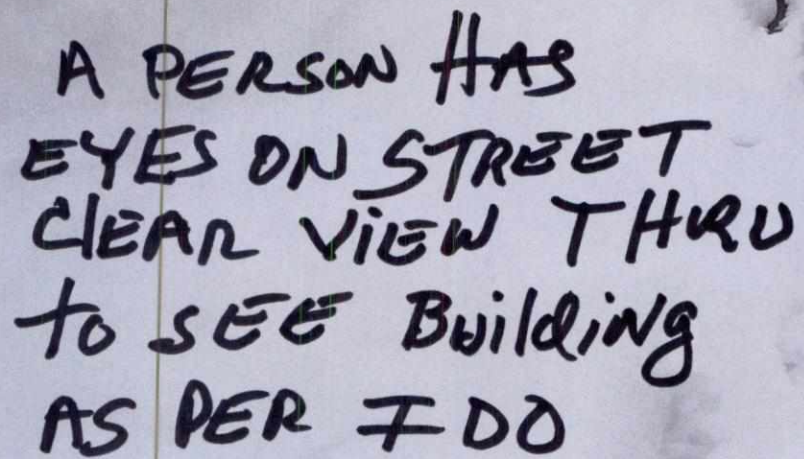 A PERSON HAS
EYES ON STREET
ClEAR ViEW THRU
to SEE BuildiNg
AS PER I DO